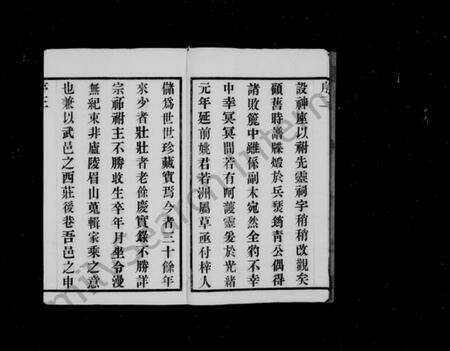 序
設神座以祔先靈祠字稍稍改觀矣
顧舊時譜牒燬於兵燹錦青公偶得
諸敗簏中雖係副本宛然全豹不幸
中幸冥冥間若有阿護靈爰於光緒
元年延前姚君若洲屬草亟付梓人
儲為世世珍藏實焉今者三十餘年
來少者壯壯者老餘慶實繇不勝詳
宗祊祔主不勝收生卒年月坐令漫
無紀束非廬陵眉山蒐輯家乘之意
也兼以武邑之西莊後巷吾邑之申
序三